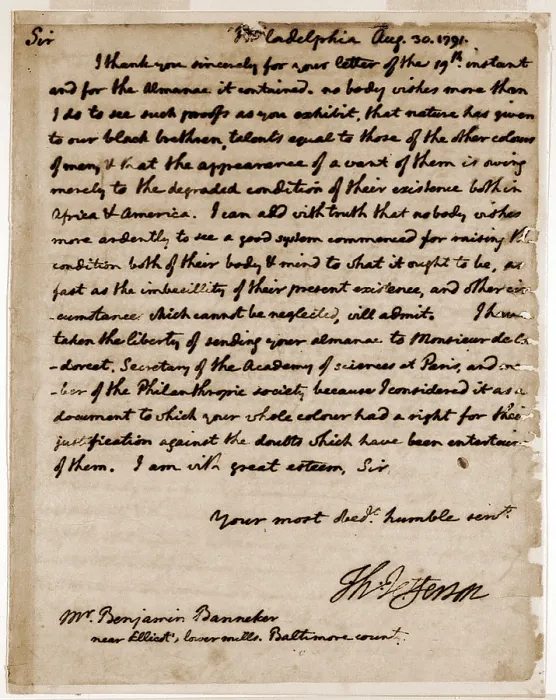 Sir
Philadelphia Aug. 30. 1791.
I thank you sincerely for your letter of the 19th. instant
and for the Almanac it contained. no body wishes more than
I do to see such proofs as you exhibit, that nature has given
to our black brethren, talents equal to those of the other colours
of men, & that the appearance of a want of them is owing
merely to the degraded condition of their existence both in
Africa & America. I can add with truth that no body wishes
more ardently to see a good system commenced for raising the
condition both of their body & mind to what it ought to be, as
fast as the imbecillity of their present existence, and other cir
-cumstances which cannot be neglected, will admit. I have
taken the liberty of sending your almanac to Monsieur de Co
-dorcet, Secretary of the Academy of sciences at Paris, and
-ber of the Philanthropic society because I considered it as a
document to which your whole colour had a right for their
justification against the doubts which have been entertain
of them. I am with great esteem, Sir,
Your most obedt. humble servt.
Th: Jefferson
Mr. Benjamin Banneker
near Ellicot's, lower mills. Baltimore county.